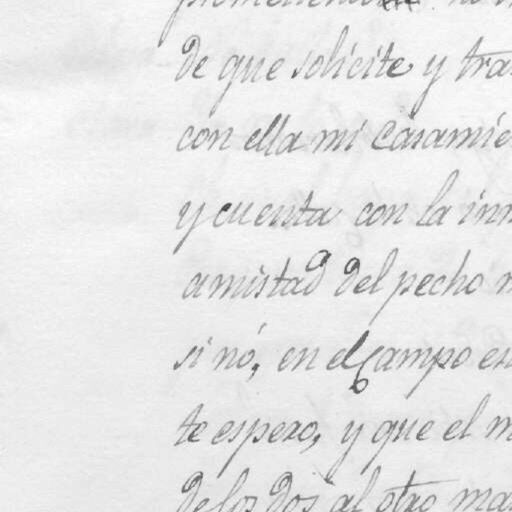 de que solicite y tra
con ella mi casamie
y cuenta con la inm
amistad del pecho m
si nó, en el campo es
te espero, y que el m
de los dos al otro ma